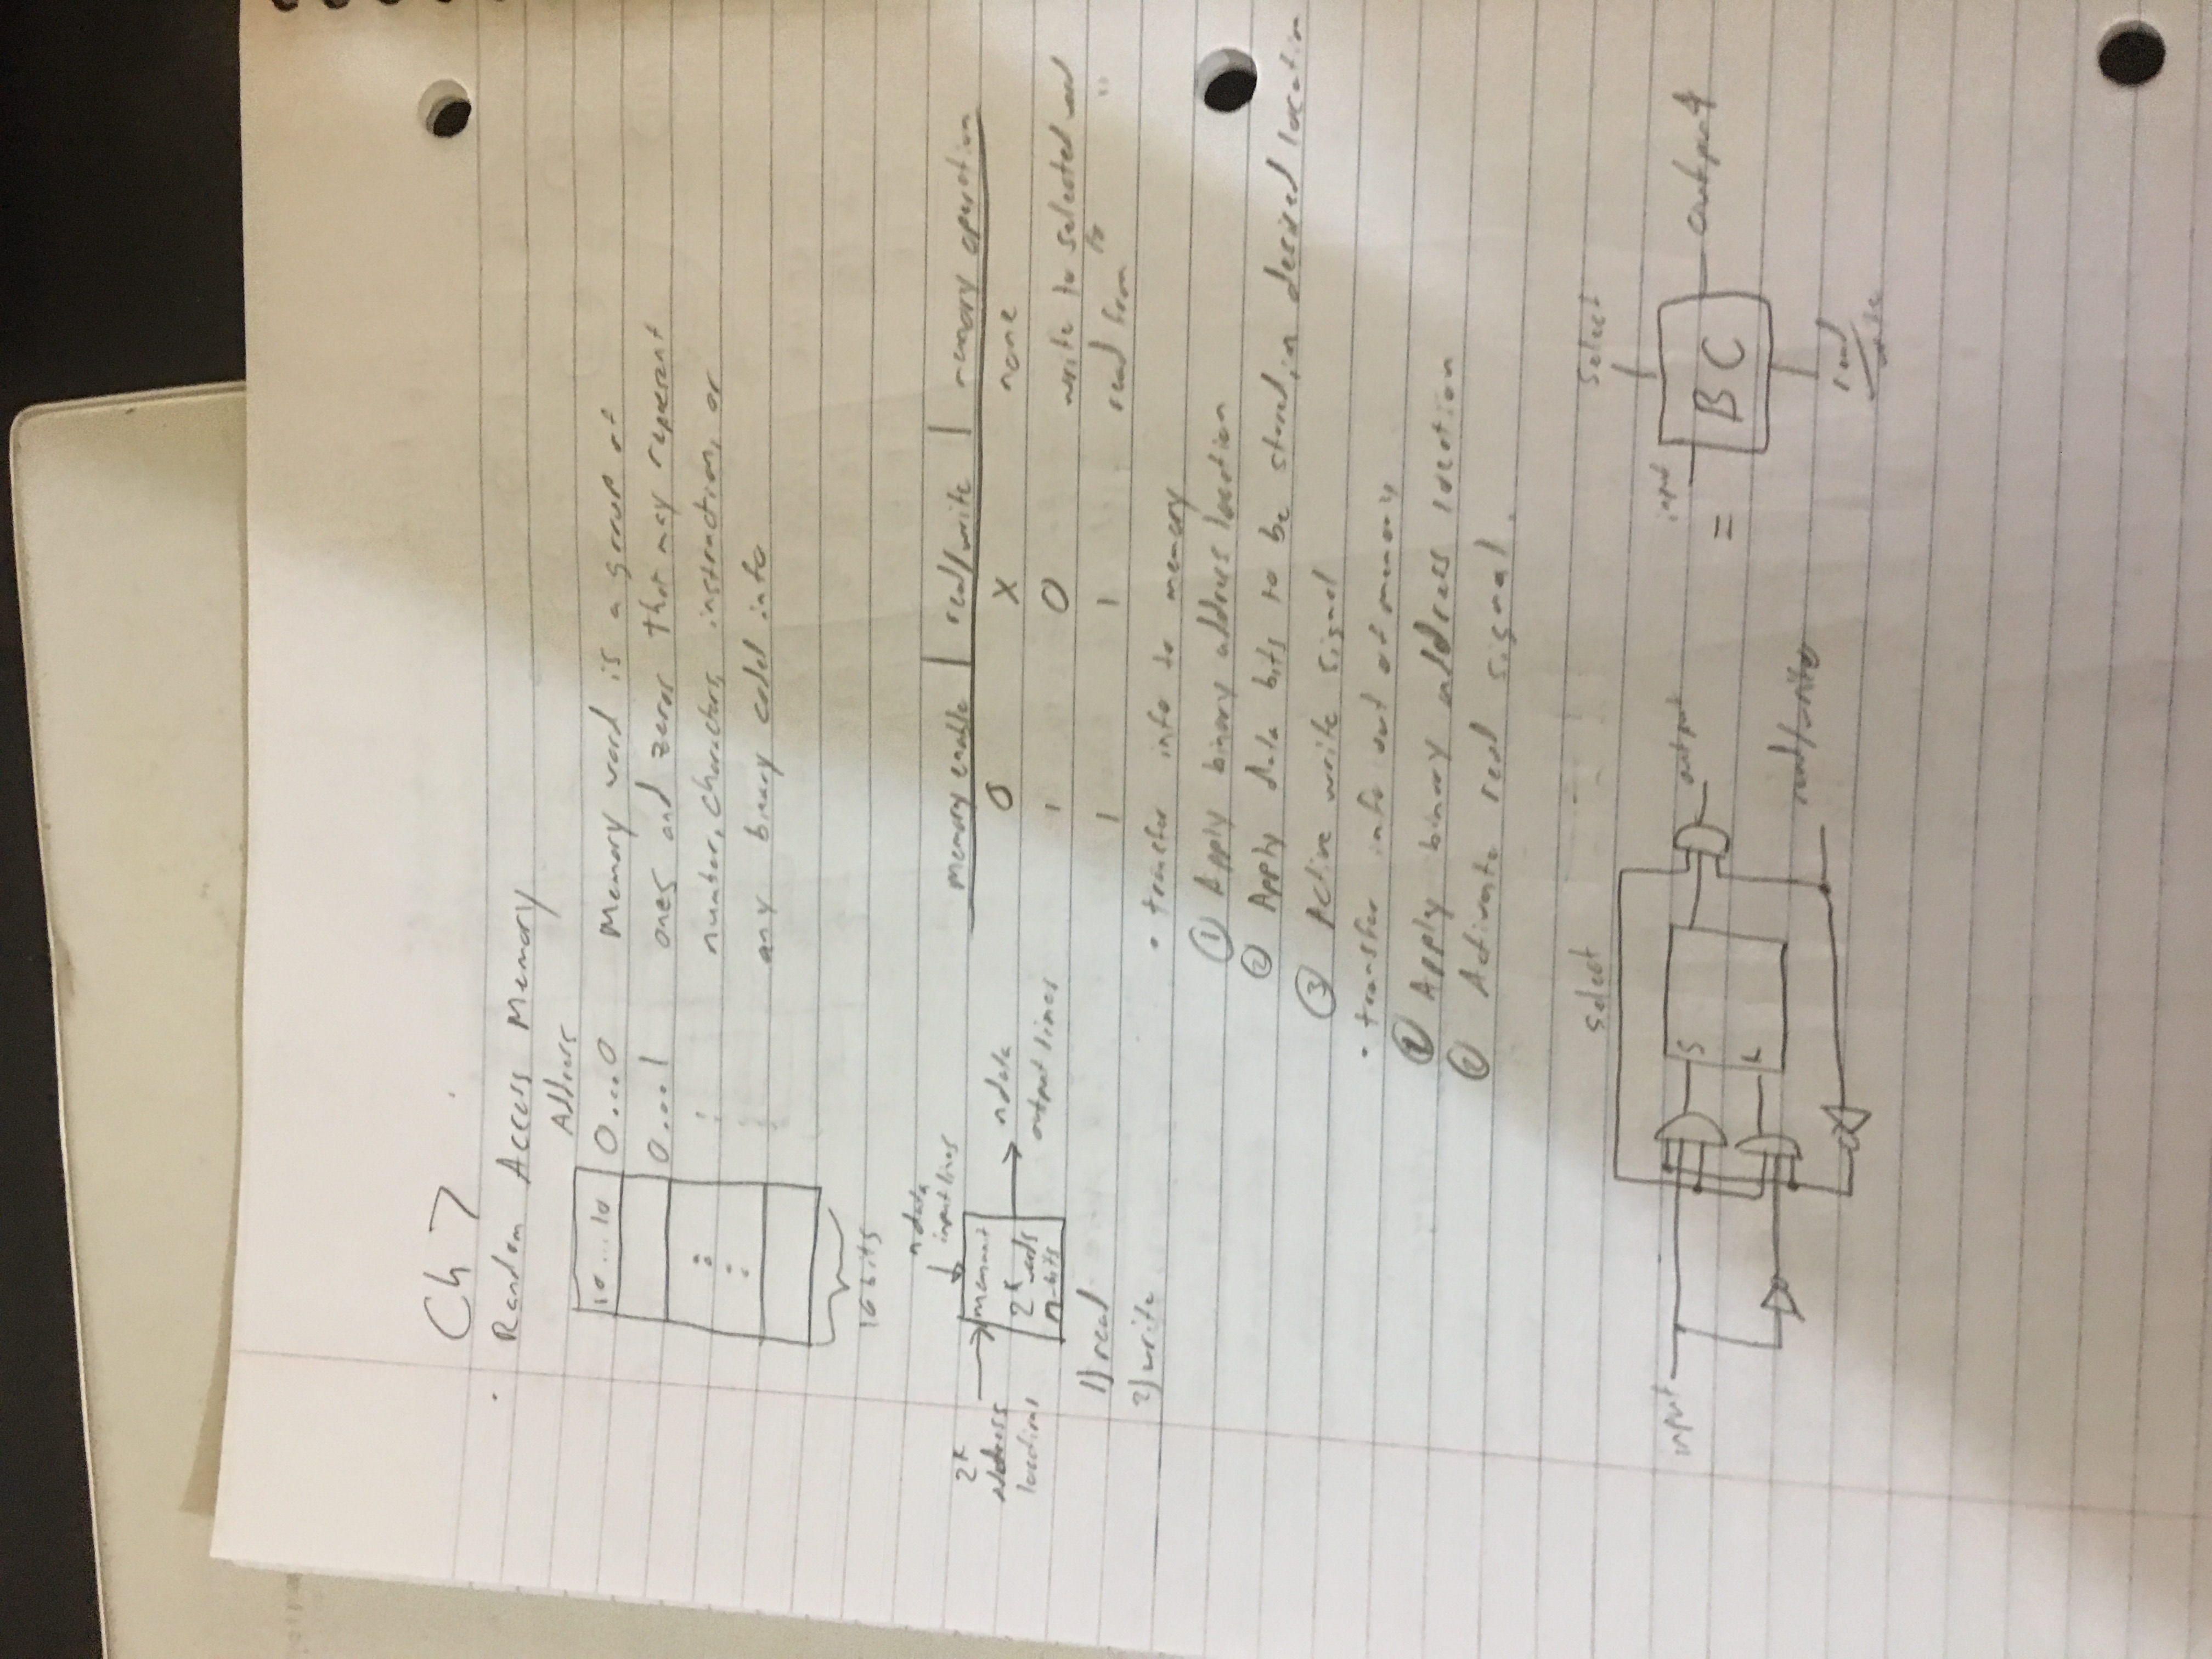 Ch 7
Random Access Memory
Address
10...10 0...0 Memory word is a group of
0...1 ones and zeros that may represent
number, characters, instruction, or
any binary coded info
16 bits
n data
input lines
2^k
address
locations
memory
2^k words
n-bits
n data
output lines
1) read
2) write
memory enable | read/write | memory operation
0 X none
1 0 write to selected word
1 1 read from " "
• transfer info to memory
① Apply binary address location
② Apply data bits to be stored in desired location
③ Active write signal
• transfer info out of memory
① Apply binary address location
② Activate read signal.
select
input
S
output
read/write
=
select
input
BC
output
read
/write